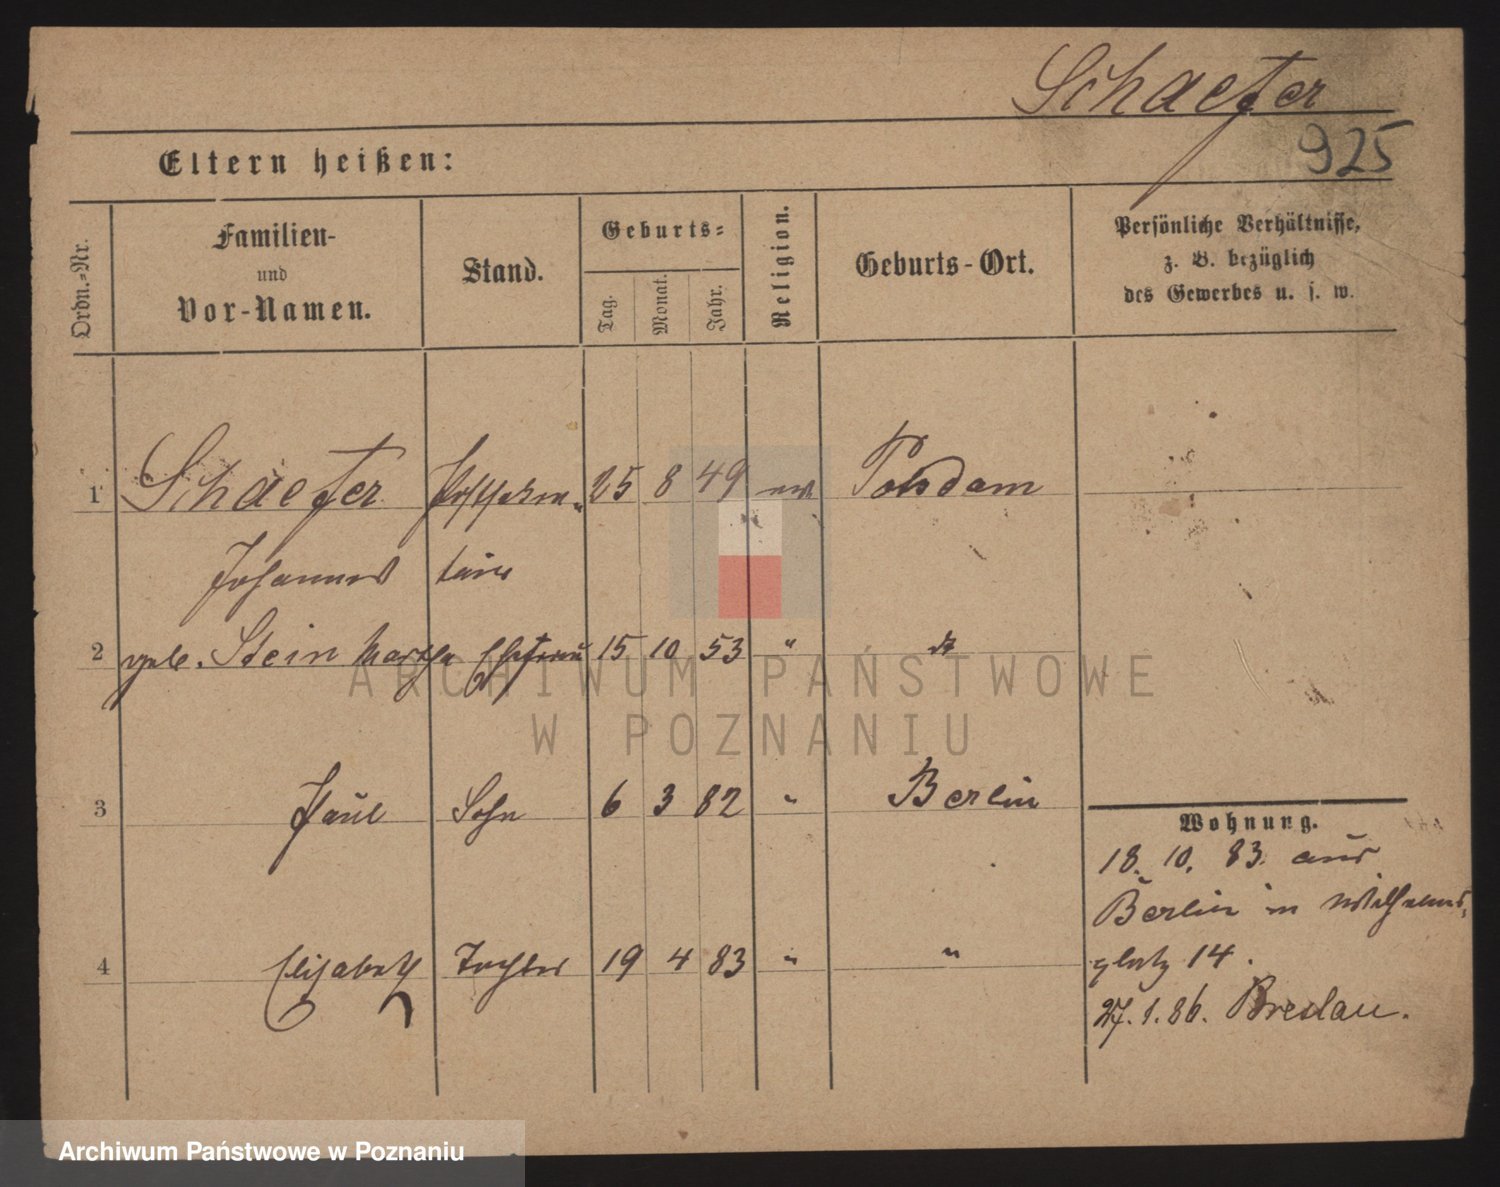 Schaefer
925
Eltern heißen:
Ordn.-Nr.
Familien-
und
Vor-Namen.
Stand.
Geburts-
Tag.
Monat.
Jahr.
Religion.
Geburts-Ort.
Persönliche Verhältnisse,
z. B. bezüglich
des Gewerbes u. s. w.
1 Schaefer 25 8 49 ev. Potsdam
Johannes
2 geb. Stein Martha Ehefrau 15 10 53 "
3 Paul Sohn 6 3 82 " Berlin
Wohnung.
18. 10. 83. aus
Berlin in Wilhelms-
platz 14.
4 Elisabeth Tochter 19 4 83 " "
27. 1. 86. Breslau.
ARCHIWUM PAŃSTWOWE
W POZNANIU
Archiwum Państwowe w Poznaniu